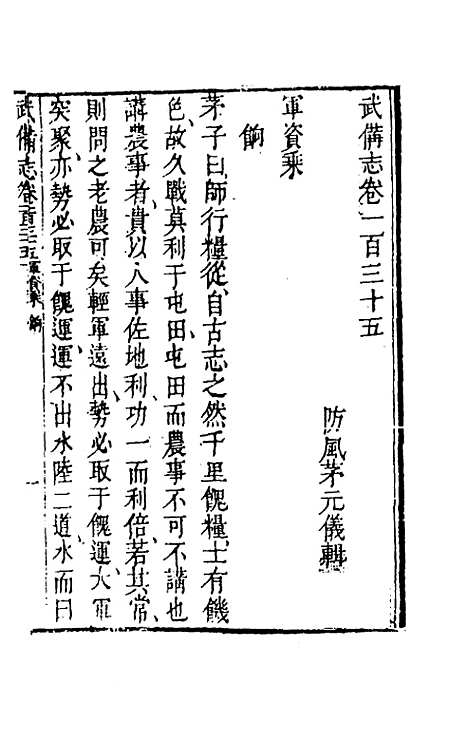 武備志卷一百三十五
防風茅元儀輯
軍資乘
餉
茅子曰師行糧從自古志之然千里餽糧士有饑
色故久戰莫利于屯田屯田而農事不可不講也
講農事者貴以人事佐地利功一而利倍若其常
則問之老農可矣輕軍遠出勢必取于餽運大軍
突聚亦勢必取于餽運運不出水陸二道水而曰
武備志卷一百三十五 軍資乘 餉 一